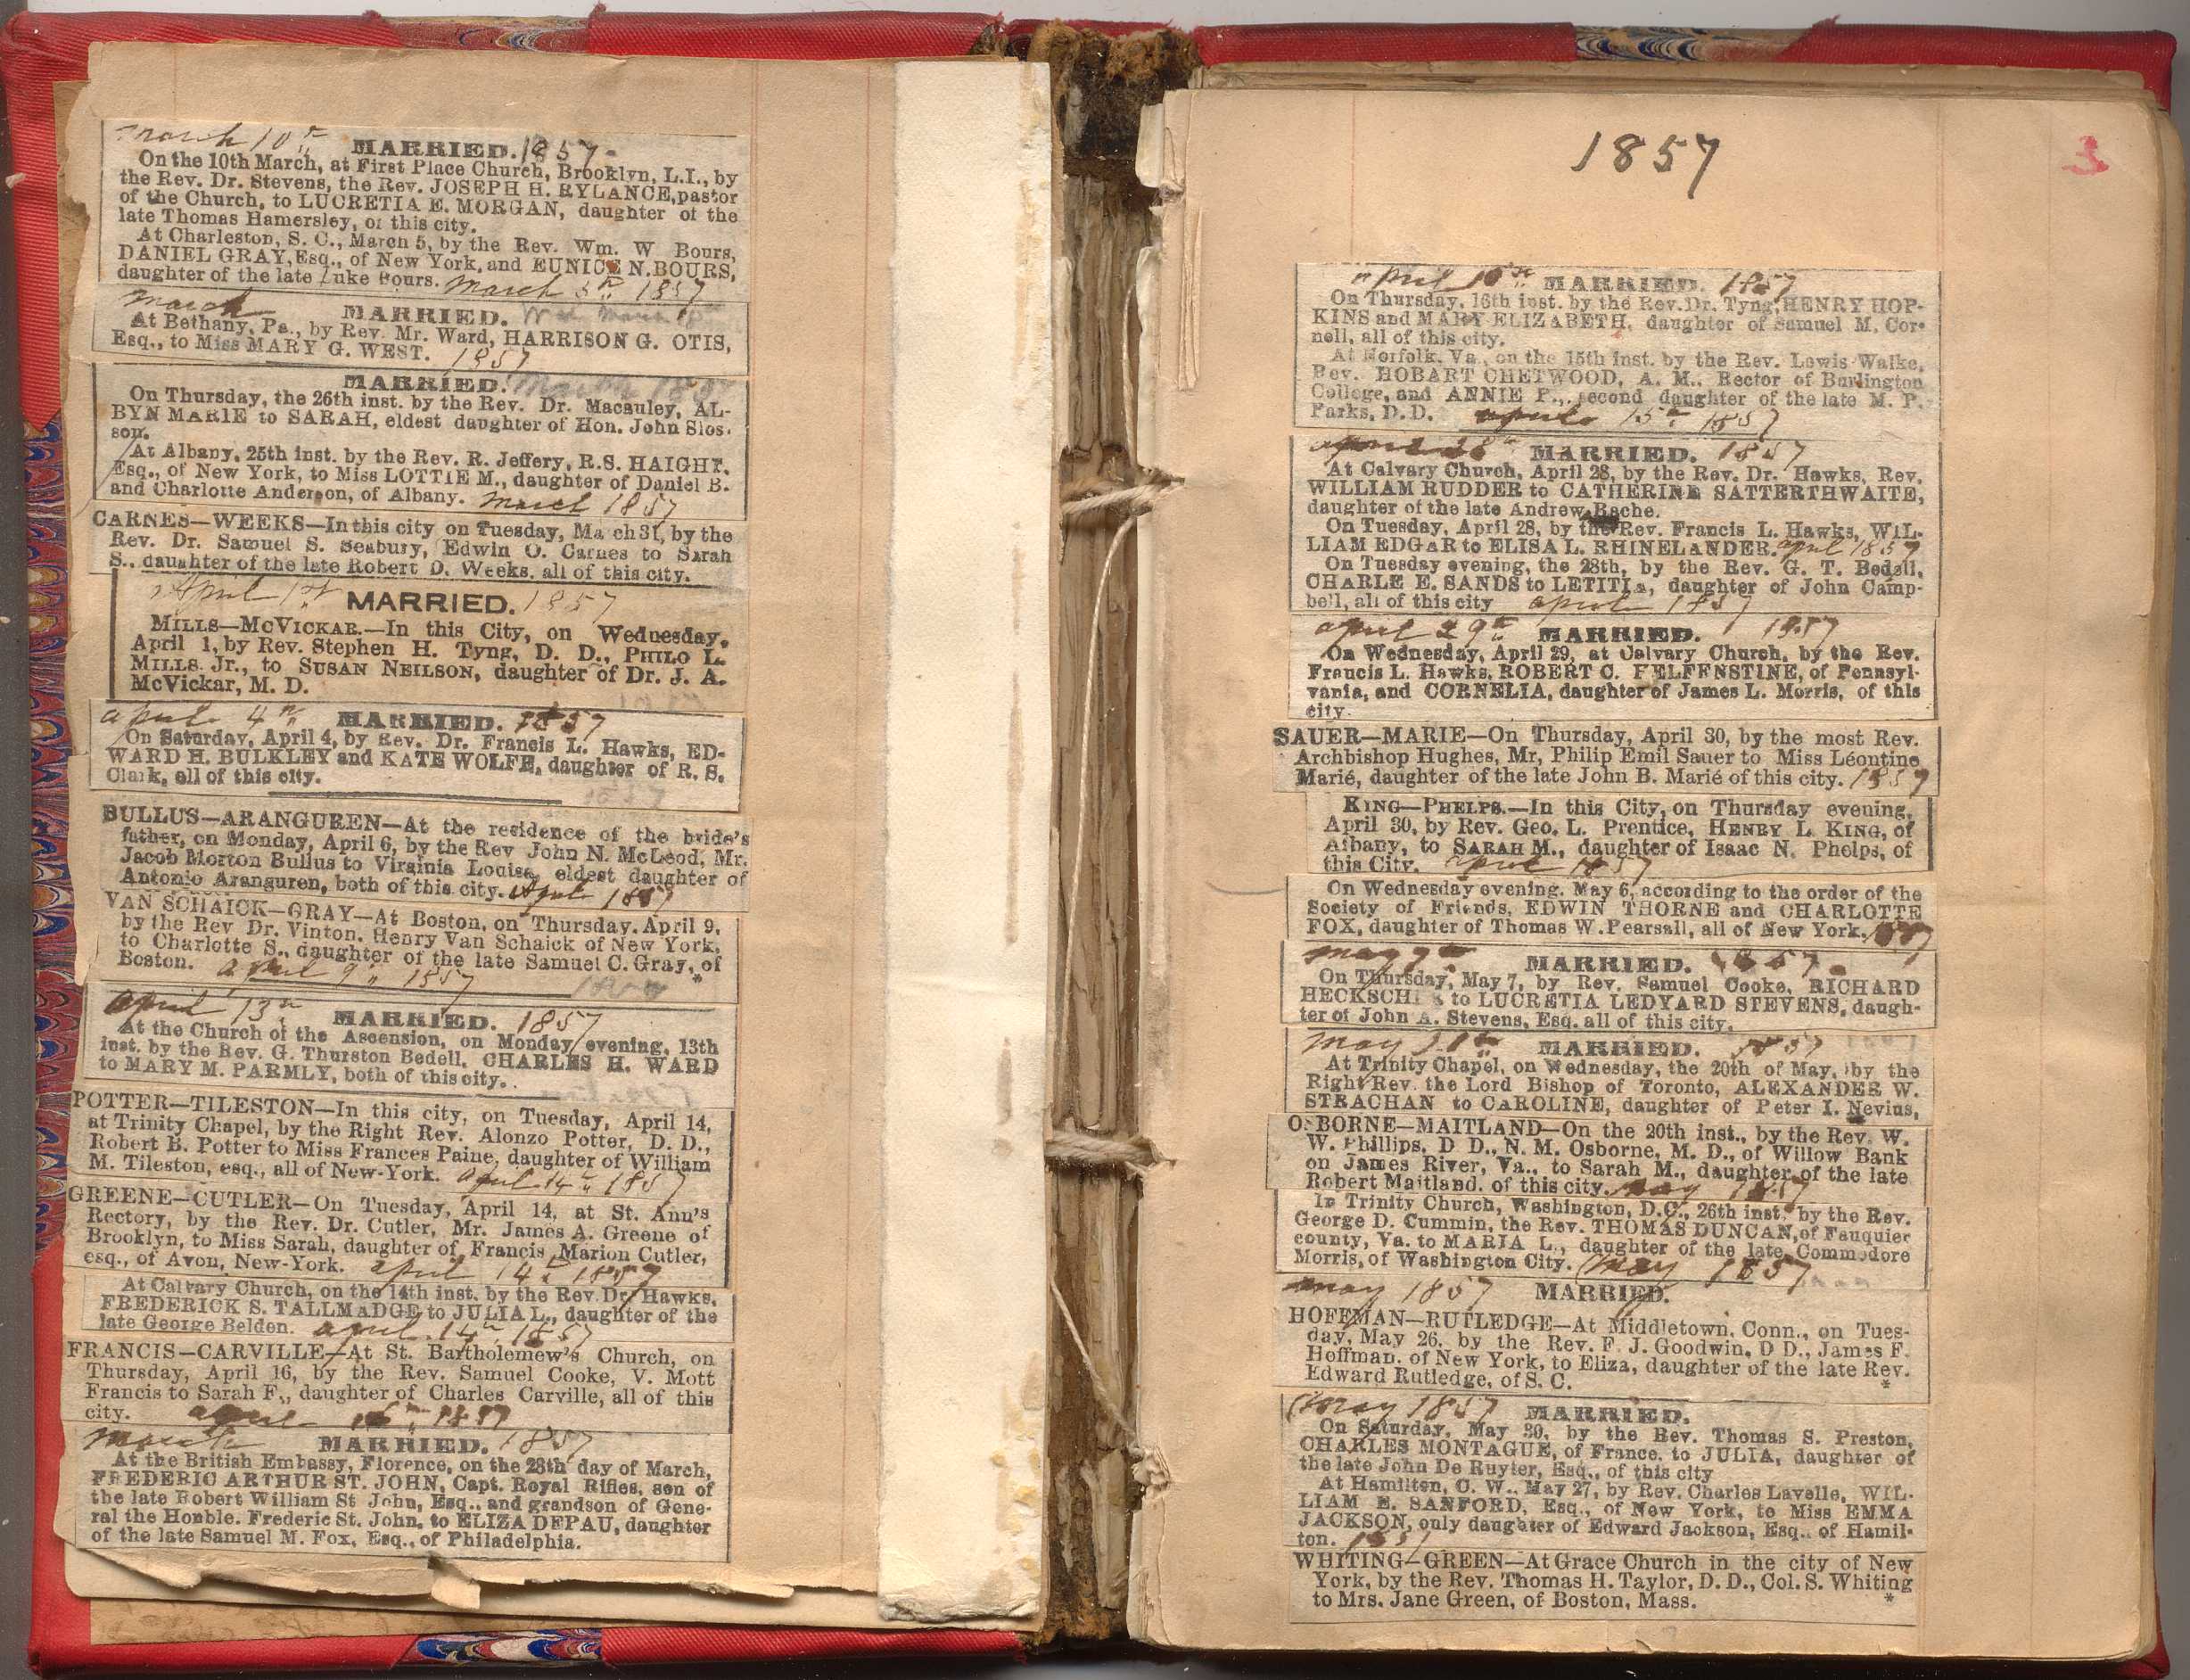 march 10th
MARRIED. 1857
On the 10th March, at First Place Church, Brooklyn, L.I., by
the Rev. Dr. Stevens, the Rev. JOSEPH H. RYLANCE, pastor
of the Church, to LUCRETIA E. MORGAN, daughter of the
late Thomas Hamersley, of this city.
At Charleston, S. C., March 5, by the Rev. Wm. W Bours,
DANIEL GRAY, Esq., of New York, and EUNICE N. BOURS,
daughter of the late Luke Bours. March 5th 1857
march
MARRIED.
At Bethany, Pa., by Rev. Mr. Ward, HARRISON G. OTIS,
Esq., to Miss MARY G. WEST. 1857
MARRIED. March 1857
On Thursday, the 26th inst. by the Rev. Dr. Macauley, AL-
BYN MARIE to SARAH, eldest daughter of Hon. John Slos-
son.
At Albany, 25th inst. by the Rev. R. Jeffery, R.S. HAIGHT,
Esq., of New York, to Miss LOTTIE M., daughter of Daniel B.
and Charlotte Anderson, of Albany. March 1857
CARNES—WEEKS—In this city on Tuesday, Ma ch 31, by the
Rev. Dr. Samuel S. Seabury, Edwin O. Carnes to Sarah
S., daughter of the late Robert D. Weeks, all of this city.
April 1st MARRIED. 1857
MILLS—MCVICKAR.—In this City, on Wednesday,
April 1, by Rev. Stephen H. Tyng, D. D., PHILO L.
MILLS Jr., to SUSAN NEILSON, daughter of Dr. J. A.
McVickar, M. D.
april 4th MARRIED. 1857
On Saturday, April 4, by Rev. Dr. Francis L. Hawks, ED-
WARD H. BULKLEY and KATE WOLFE, daughter of R. S.
Clark, all of this city.
BULLUS—ARANGUREN—At the residence of the bride's
father, on Monday, April 6, by the Rev John N. McLeod, Mr.
Jacob Morton Bullus to Virginia Louise, eldest daughter of
Antonio Aranguren, both of this city. April 1857
VAN SCHAICK—GRAY—At Boston, on Thursday, April 9,
by the Rev Dr. Vinton, Henry Van Schaick of New York,
to Charlotte S., daughter of the late Samuel C. Gray, of
Boston. April 9th 1857 *
April 13th MARRIED. 1857
At the Church of the Ascension, on Monday evening, 13th
inst. by the Rev. G. Thurston Bedell, CHARLES H. WARD
to MARY M. PARMLY, both of this city.
POTTER—TILESTON—In this city, on Tuesday, April 14,
at Trinity Chapel, by the Right Rev. Alonzo Potter, D. D.,
Robert B. Potter to Miss Frances Paine, daughter of William
M. Tileston, esq., all of New-York. April 14th 1857
GREENE—CUTLER—On Tuesday, April 14, at St. Ann's
Rectory, by the Rev. Dr. Cutler, Mr. James A. Greene of
Brooklyn, to Miss Sarah, daughter of Francis Marion Cutler,
esq., of Avon, New-York. april 14th 1857
At Calvary Church, on the 14th inst. by the Rev. Dr. Hawks,
FREDERICK S. TALLMADGE to JULIA L., daughter of the
late George Belden. april 14th 1857
FRANCIS—CARVILLE—At St. Bartholemew's Church, on
Thursday, April 16, by the Rev. Samuel Cooke, V. Mott
Francis to Sarah F., daughter of Charles Carville, all of this
city. april 16th 1857
March MARRIED. 1857
At the British Embassy, Florence, on the 28th day of March,
FREDERIC ARTHUR ST. JOHN, Capt. Royal Rifles, son of
the late Robert William St John, Esq., and grandson of Gene-
ral the Honble. Frederic St. John, to ELIZA DEPAU, daughter
of the late Samuel M. Fox, Esq., of Philadelphia.
1857
3
April MARRIED. 1857
On Thursday, 16th inst. by the Rev. Dr. Tyng, HENRY HOP-
KINS and MARY ELIZABETH, daughter of Samuel M. Cor-
nell, all of this city.
At Norfolk, Va., on the 15th inst. by the Rev. Lewis Walke,
Rev. HOBART CHETWOOD, A. M., Rector of Burlington
College, and ANNIE P., second daughter of the late M. P.
Parks, D.D. april 15th 1857
april 28th MARRIED. 1857
At Calvary Church, April 28, by the Rev. Dr. Hawks, Rev.
WILLIAM RUDDER to CATHERINE SATTERTHWAITE,
daughter of the late Andrew Bache.
On Tuesday, April 28, by the Rev. Francis L. Hawks, WIL-
LIAM EDGAR to ELISA L. RHINELANDER. April 1857
On Tuesday evening, the 28th, by the Rev. G. T. Bedell,
CHARLE E. SANDS to LETITIA, daughter of John Camp-
bell, all of this city april 1857
april 29th MARRIED. 1857
On Wednesday, April 29, at Calvary Church, by the Rev.
Francis L. Hawks, ROBERT C. FELFENSTINE, of Pennsyl-
vania, and CORNELIA, daughter of James L. Morris, of this
city.
SAUER—MARIE—On Thursday, April 30, by the most Rev.
Archbishop Hughes, Mr, Philip Emil Sauer to Miss Léontine
Marié, daughter of the late John B. Marié of this city. 1857
KING—PHELPS.—In this City, on Thursday evening,
April 30, by Rev. Geo. L. Prentice, HENRY L. KING, of
Albany, to SARAH M., daughter of Isaac N. Phelps, of
this City. april 1857
On Wednesday evening, May 6, according to the order of the
Society of Friends, EDWIN THORNE and CHARLOTTE
FOX, daughter of Thomas W. Pearsall, all of New York. 1857
may 7th MARRIED. 1857
On Thursday, May 7, by Rev. Samuel Cooke, RICHARD
HECKSCH to LUCRETIA LEDYARD STEVENS, daugh-
ter of John A. Stevens, Esq. all of this city.
May MARRIED. 1857
At Trinity Chapel, on Wednesday, the 20th of May, by the
Right Rev. the Lord Bishop of Toronto, ALEXANDER W.
STRACHAN to CAROLINE, daughter of Peter I. Nevius,
OSBORNE—MAITLAND—On the 20th inst., by the Rev. W.
W. Phillips, D D., N. M. Osborne, M. D., of Willow Bank
on James River, Va., to Sarah M., daughter of the late
Robert Maitland, of this city. May 1857
In Trinity Church, Washington, D.C., 26th inst. by the Rev.
George D. Cummin, the Rev. THOMAS DUNCAN, of Fauquier
county, Va. to MARIA L., daughter of the late Commodore
Morris, of Washington City. May 1857
may 1857 MARRIED.
HOFFMAN—RUTLEDGE—At Middletown, Conn., on Tues-
day, May 26, by the Rev. F. J. Goodwin, D D., James F.
Hoffman, of New York, to Eliza, daughter of the late Rev.
Edward Rutledge, of S. C. *
May 1857 MARRIED.
On Saturday, May 30, by the Rev. Thomas S. Preston,
CHARLES MONTAGUE, of France, to JULIA, daughter of
the late John De Ruyter, Esq., of this city
At Hamilton, C. W., May 27, by Rev. Charles Lavelle, WIL-
LIAM E. SANFORD, Esq., of New York, to Miss EMMA
JACKSON, only daughter of Edward Jackson, Esq., of Hamil-
ton. 1857
WHITING—GREEN—At Grace Church in the city of New
York, by the Rev. Thomas H. Taylor, D. D., Col. S. Whiting
to Mrs. Jane Green, of Boston, Mass. *